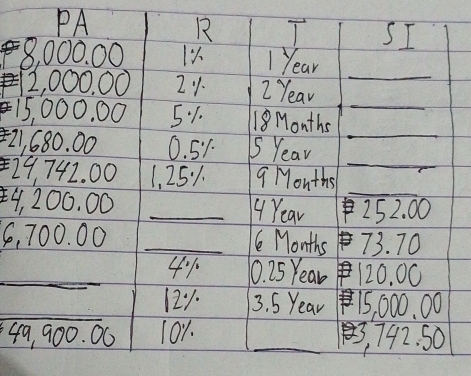 PA R T SI
₱8,000.00 1% 1 Year ______
₱12,000.00 2% 2 Year ______
₱15,000.00 5% 18 Months ______
₱21,680.00 0.5% 5 Year ______
₱24,742.00 1.25% 9 Months ______
₱4,200.00 ______ 4 Year ₱252.00
6,700.00 ______ 6 Months ₱73.70
______ 4% 0.25 Year ₱120.00
______ 12% 3.5 Year ₱15,000.00
₱49,900.00 10% ______ ₱3,742.50